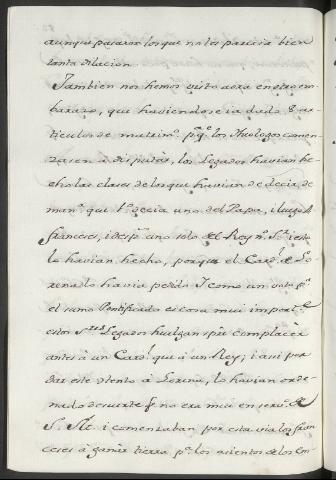 aunque pasavan los que no les parecia bien
tanta dilacion.
Tambien nos hemos visto aora en otro em-
barazo, que haviendose ia dado 8 ar-
ticulos de matrim.º p.ª q.e los theologos comen-
zasen a disputár, los Legados havian he-
cho las clases de los que havian de decir, de
man.ª que 1.º decia uno del Papa, i luego 2
franceses, i desp.s uno solo del Rey n.º S.r i esto
lo havian hecho, porque el Card.l de Lo-
rena lo havia pedido I como un voto p.ª
el sumo Pontificado es cosa mui import.te
estos S.res Legados huelgan sp.re complacér
antes à un Card.l que à un Rey; i assi por
dar este contento à Lorena, lo havian orde-
nado de suerte q.e no era mui en serv.º de
S. M. i comenzaban por esta via los fran-
ceses à ganár tierra p.ª los asientos de los Em-